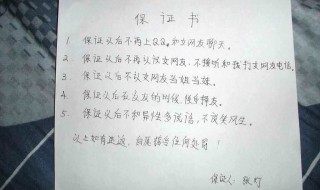 保证书
1. 保证以后不再上QQ和女网友聊天。
2. 保证以后不再认识女网友,不接听和拨打女网友电话。
3. 保证以后不认女网友当姐当妹。
4. 保证以后在交友的时候,慎重择友。
5. 保证以后不和异性多说话,不谈笑风生。
以上如有违返,自愿接受任何处罚!
保证人: